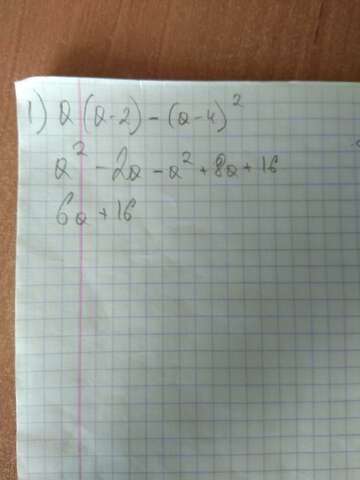 1) a(a-2)-(a-4)²
a² - 2a - a² + 8a + 16
6a + 16